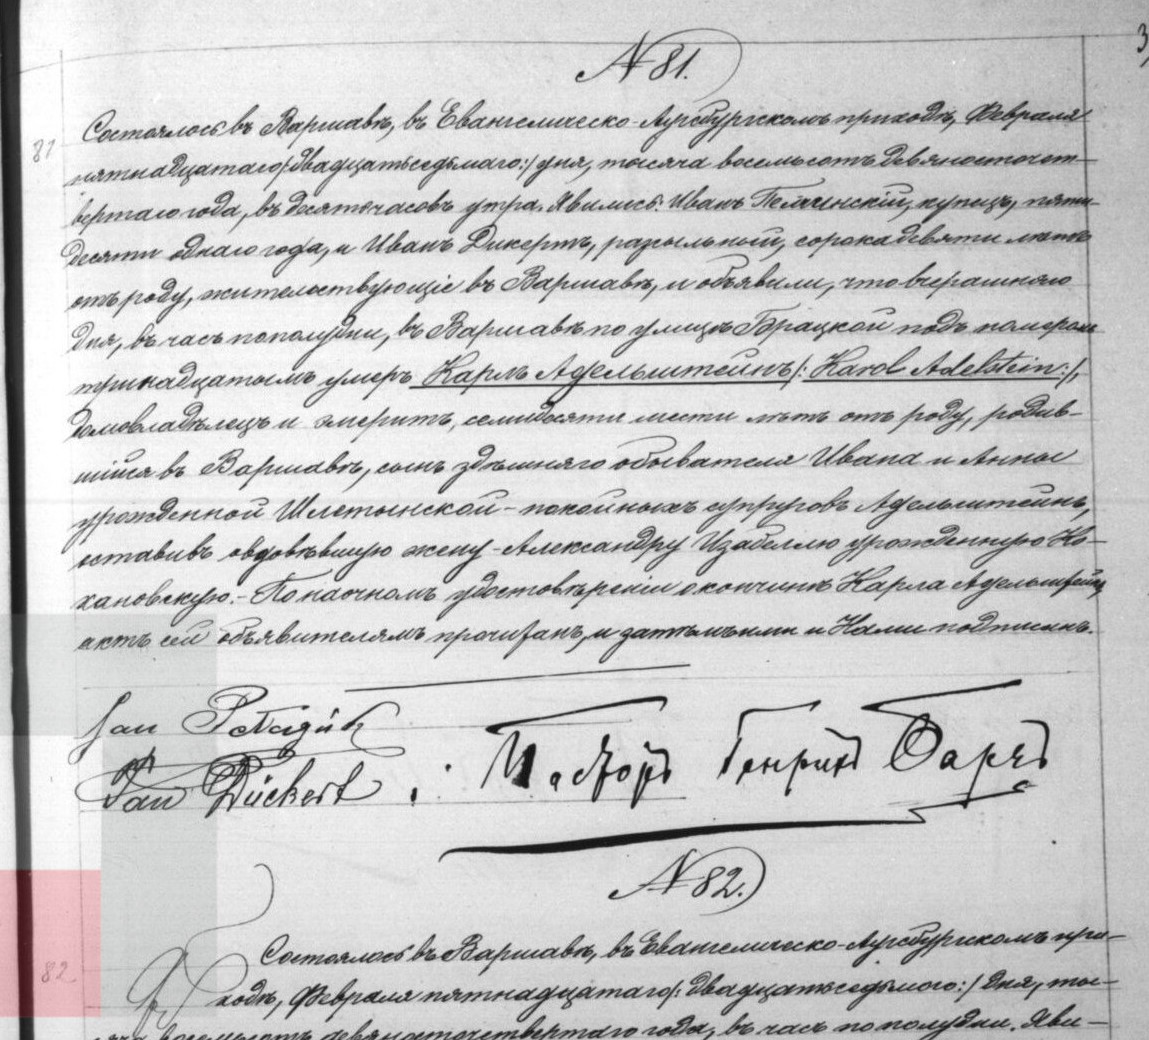 3
№ 81.
81
Состоялось въ Варшавѣ, въ Евангелическо-Аугсбургскомъ приходѣ, Февраля
пятнадцатаго /:двадцатьседьмаго:/ дня, тысяча восемьсотъ девяносточет-
вертаго года, въ десять часовъ утра. Явились: Иванъ купецъ, пяти-
десяти однаго года, и Иванъ Дикертъ, сорокадевяти лѣтъ
отъ роду, жительствующіе въ Варшавѣ, и объявили, что вчерашняго
дня, въ часъ пополудни, въ Варшавѣ по улицѣ Брацкой подъ номеромъ
тринадцатымъ умеръ Карлъ Адельштейнъ /: Karol Adelstein :/,
домовладѣлецъ и эмеритъ, семидесяти шести лѣтъ отъ роду, родив-
шійся въ Варшавѣ, сынъ здѣшняго обывателя Ивана и Анны
урожденной Шлетынской - покойныхъ супруговъ Адельштейнъ,
оставивъ овдовѣвшую жену - Александру Изабеллю урожденную Ко-
хановскую. - По наочномъ удостовѣреніи о кончинѣ Карла Адельштейна
актъ сей объявителямъ прочитанъ, и затѣмъ ими и Нами подписанъ.
Jan
Jan Dückert
Пасторъ Генрихъ
№ 82.
82
Состоялось въ Варшавѣ, въ Евангелическо-Аугсбургскомъ при-
ходѣ, Февраля пятнадцатаго /: двадцатьседьмого :/ дня, ты-
сяча восемьсотъ девяносточетвертаго года, въ часъ пополудни. Яви-